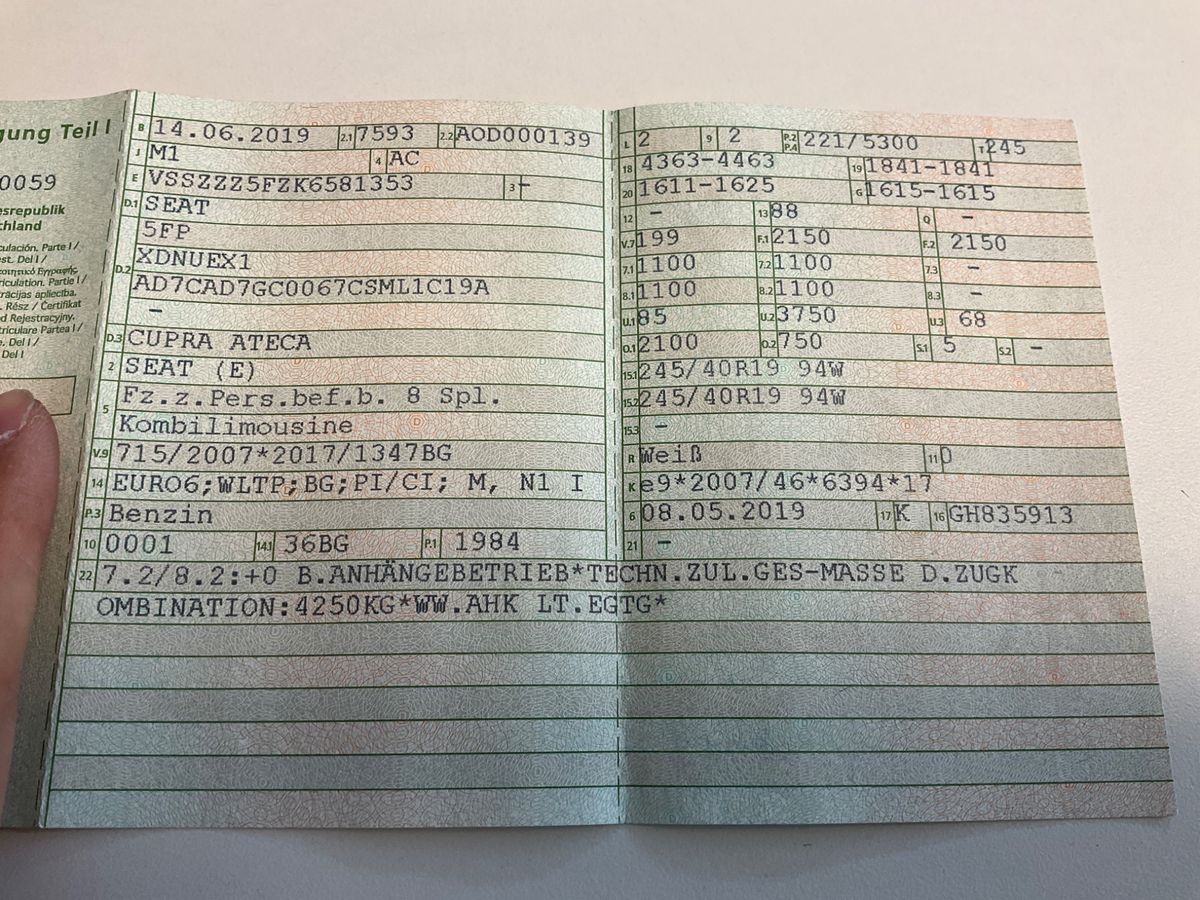 gung Teil I
0059
esrepublik
chland
culación. Parte I /
est. Del I /
triculation. Partie I /
trācijas apliecība.
. Rész / Ċertifikat
d Rejestracyjny.
triculare Partea I /
e. Del I /
Del I
B 14.06.2019 2.1 7593 2.2 AOD000139
J M1 4 AC
E VSSZZZ5FZK6581353 3 –
D.1 SEAT
5FP
D.2 XDNUEX1
AD7CAD7GC0067CSML1C19A
–
D.3 CUPRA ATECA
2 SEAT (E)
5 Fz.z.Pers.bef.b. 8 Spl.
Kombilimousine
V.9 715/2007*2017/1347BG
14 EURO6;WLTP;BG;PI/CI; M, N1 I
P.3 Benzin
10 0001 14.1 36BG P.1 1984
L 2 9 2 P.2 P.4 221/5300 T 245
18 4363-4463 19 1841-1841
20 1611-1625 G 1615-1615
12 – 13 88 Q –
V.7 199 F.1 2150 F.2 2150
7.1 1100 7.2 1100 7.3 –
8.1 1100 8.2 1100 8.3 –
U.1 85 U.2 3750 U.3 68
O.1 2100 O.2 750 S.1 5 S.2 –
15.1 245/40R19 94W
15.2 245/40R19 94W
15.3 –
R Weiß 11 0
K e9*2007/46*6394*17
6 08.05.2019 17 K 16 GH835913
21 –
22 7.2/8.2:+0 B.ANHÄNGEBETRIEB*TECHN.ZUL.GES-MASSE D.ZUGK
OMBINATION:4250KG*WW.AHK LT.EGTG*